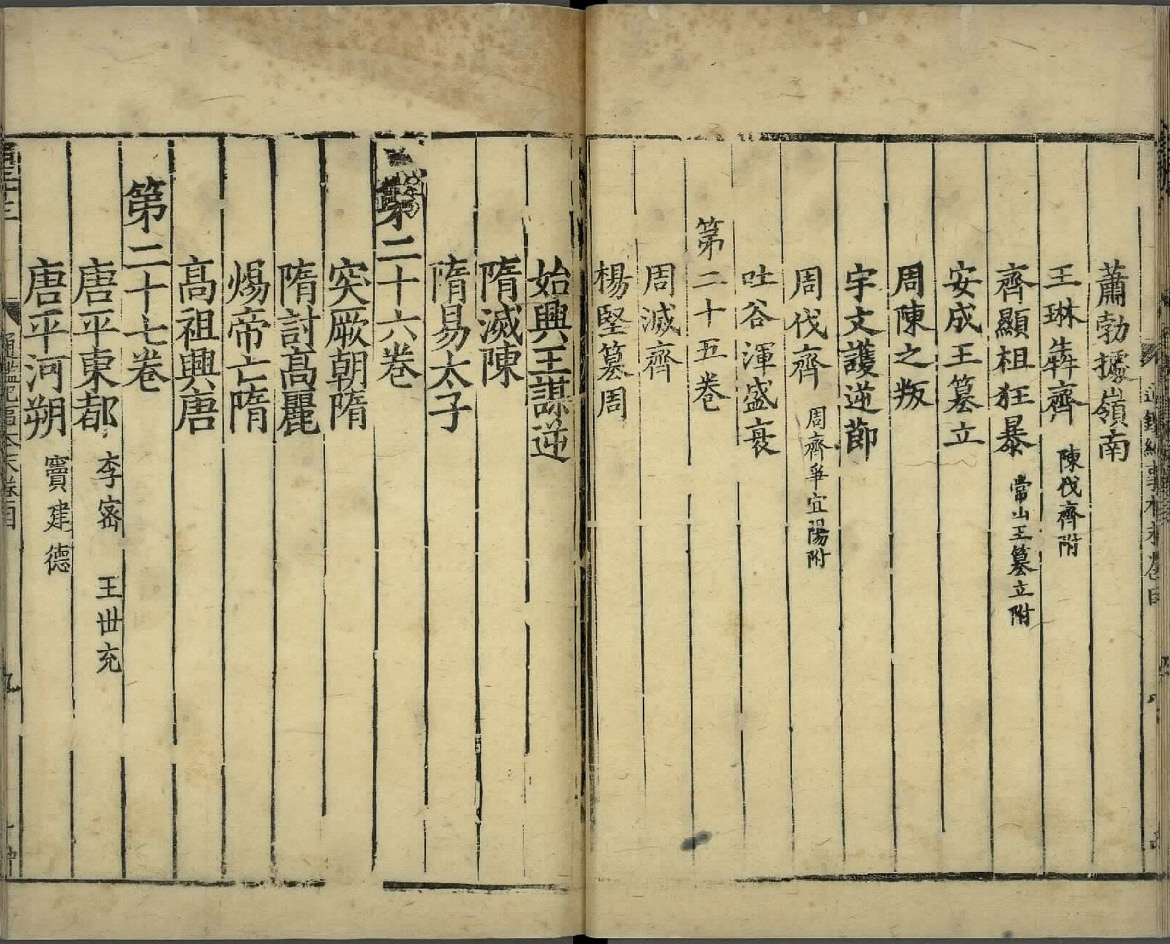 蕭勃據嶺南
王琳犇齊 陳伐齊附
齊顯祖狂暴 常山王篡立附
安成王篡立
周陳之叛
宇文護逆節
周伐齊 周齊爭宜陽附
吐谷渾盛衰
第二十五卷
周滅齊
楊堅篡周
始興王謀逆
隋滅陳
隋易太子
第二十六卷
突厥朝隋
隋討髙麗
煬帝亡隋
髙祖興唐
第二十七卷
唐平東都 李密 王世充
唐平河朔 竇建德